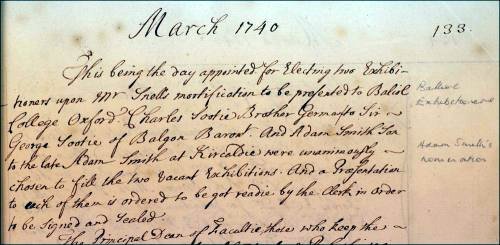 March 1740
133.
This being the day appointed for Electing two Exhibi-
tioners upon Mr Snells mortification to be presented to Baliol
College Oxford. Charles Sootie Brother German to Sir
George Sootie of Balgon Baront. And Adam Smith Son
to the late Adam Smith at Kircaldie were unanimously
chosen to fill the two Vacant Exhibitions. And a Presentation
to each of them is ordered to be got readie by the Clerk in order
to be Signed and Sealed.
The Principal Dean of Facultie, those who keep the
Exhibitioners
Adam Smith's
nomination